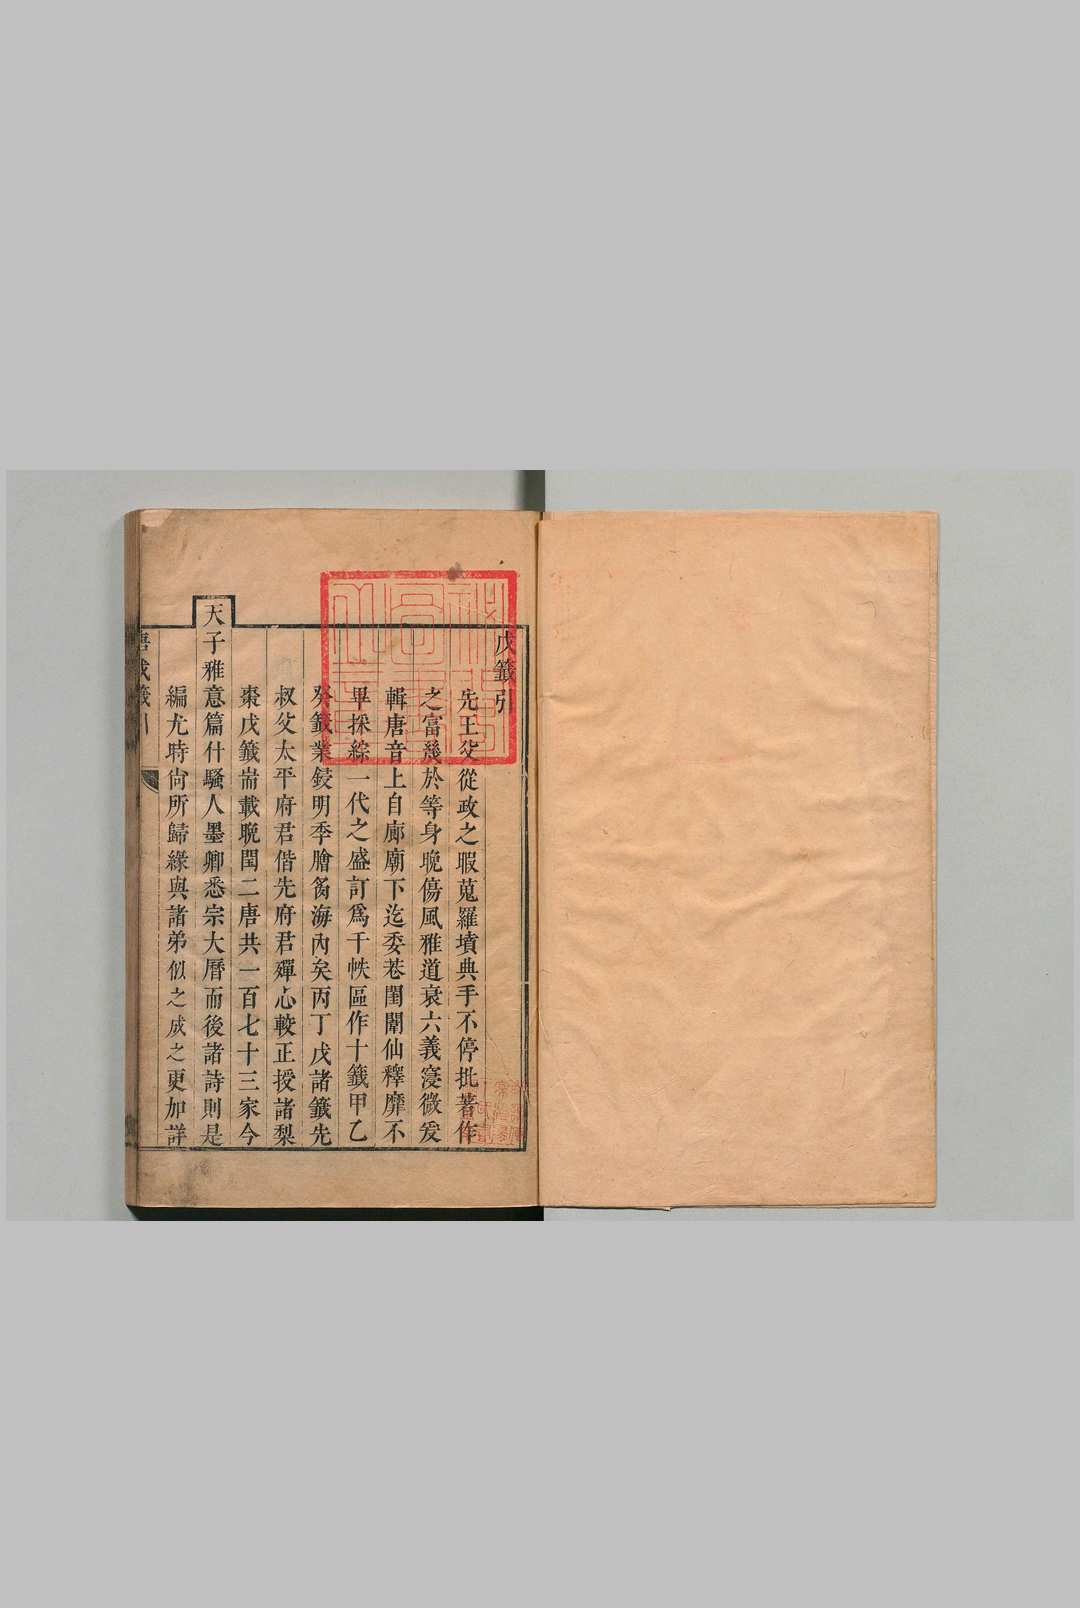 戊籖引
先王父從政之暇蒐羅墳典手不停批著作
之富幾於等身晚傷風雅道衰六義寖微爰
輯唐音上自廊廟下迄委巷閨闈仙釋靡不
畢採綜一代之盛訂爲千帙區作十籖甲乙
癸籖業鋟明季膾炙海內矣丙丁戊諸籖先
叔父太平府君偕先府君殫心較正授諸梨
棗戊籖耑載晚閏二唐共一百七十三家今
天子雅意篇什騷人墨卿悉宗大曆而後諸詩則是
編尤時尙所歸緣與諸弟侄之成之更加詳
唐戊籖引